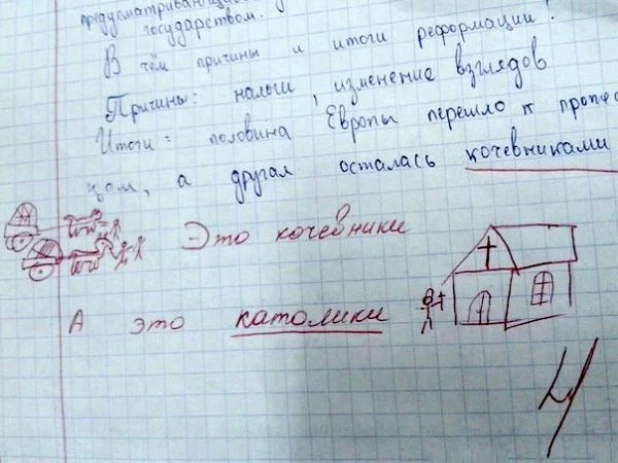 предусматривающий
государством.
В чём причины и итоги реформации?
Причины: налоги, изменение взглядов
Итоги: половина Европы перешло к протес
цом, а другая осталась кочевниками
Это кочевники
А это католики
4